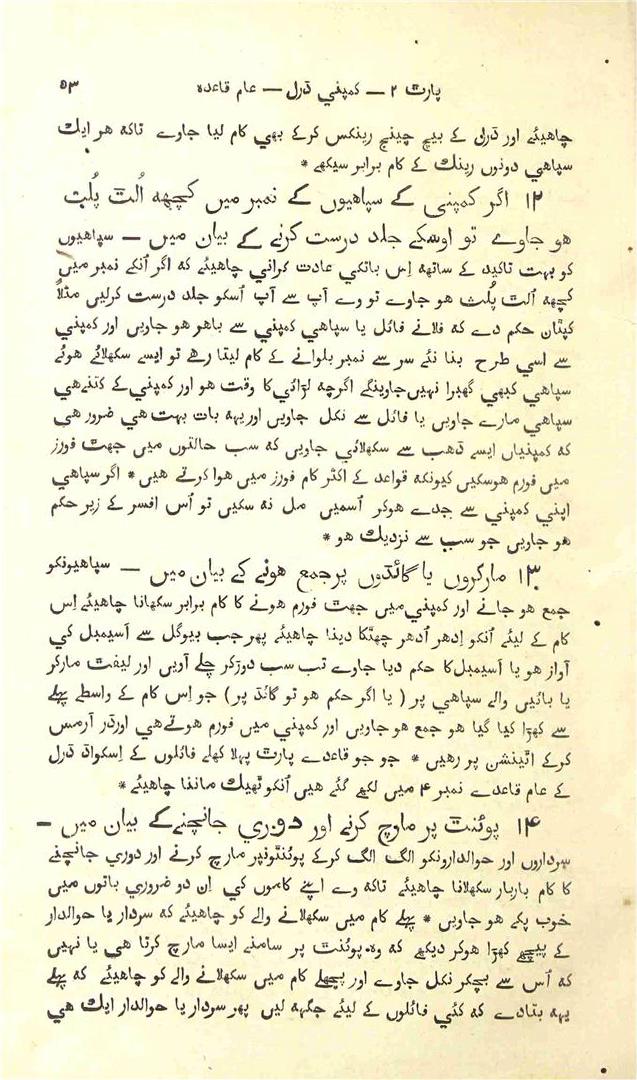 پارت ۲ — کمپني ڌرل — عام قاعده ۵۳
چاهیئے اور ڌرل کے بیچ چینچ رینکس کرکے بھی کام لیا جاوے تاکه هر ایك
سپاهي دونوں رینك کے کام برابر سیکھے *
۱۲ اگر کمپنی کے سپاهیوں کے نمبر میں کچھه اُلٿ پُلٿ
هو جاوے تو اوسکے جلد درست کرنے کے بیان میں — سپاهیوں
کو بہت تاکید کے ساتھه اِس باتکي عادت کراني چاهیئے که اگر اُنکے نمبر میں
کچھه اُلٿ پُلٿ هو جاوے تو وے آپ سے آپ اُسکو جلد درست کرلیں مثلاً
کپٿان حکم دے که فلانے فائل یا سپاهي کمپني سے باهر هو جاویں اور کمپني
سے اسي طرح بنا نئے سر سے نمبر بلوانے کے کام لیتا رهے تو ایسے سکھلائے هوئے
سپاهي کبھي گھبرا نہیں جاوینگے اگرچه لڙائي کا وقت هو اور کمپني کے کتنے هي
سپاهي مارے جاویں یا فائل سے نکل جاویں اور یهه بات بہت هي ضرور هي
که کمپنیاں ایسے ڌهب سے سکھلائي جاویں که سب حالتوں میں جھٿ فورز
میں فورم هوسکیں کیونکه قواعد کے اکثر کام فورز میں هوا کرتے هیں * اگر سپاهي
اپني کمپني سے جدے هوکر اُسمیں مل نه سکیں تو اُس افسر کے زیر حکم
هو جاویں جو سب سے نزدیك هو *
۱۳ مارکروں یا گائڌوں پر جمع هونے کے بیان میں — سپاهیونکو
جمع هو جانے اور کمپني میں جھٿ فورم هونے کا کام برابر سکھانا چاهیئے اِس
کام کے لیئے اُنکو اِدهر اُدهر چھٿکا دینا چاهیئے پھر جب بیوگل سے اَسیمبل کي
آواز هو یا اَسیمبل کا حکم دیا جاوے تب سب دوڙکر چلے آویں اور لیفٿ مارکر
یا بائیں والے سپاهي پر ( یا اگر حکم هو تو گائڌ پر ) جو اِس کام کے واسطے پہلے
سے کھڙا کیا گیا هو جمع هو جاویں اور کمپني میں فورم هوتے هي اورڌر آرمس
کرکے اٿینشن پر رهیں * جو جو قاعدے پارٿ پہلا کھلے فائلوں کے اِسکواڌ ڌرل
کے عام قاعدے نمبر ۴ میں لکھے گئے هیں اُنکو ٿھیك ماننا چاهیئے *
۱۴ پوئنٿ پر مارچ کرنے اور دوري جانچنے کے بیان میں —
سرداروں اور حوالدارونکو الگ الگ کرکے پوئنٿونپر مارچ کرنے اور دوري جانچنے
کا کام باربار سکھلانا چاهیئے تاکه وے اپنے کاموں کي اِن دو ضروري باتوں میں
خوب پکے هو جاویں * پہلے کام میں سکھلانے والے کو چاهیئے که سردار یا حوالدار
کے پیچھے کھڙا هوکر دیکھے که وہ پوئنٿ پر سامنے ایسا مارچ کرتا هي یا نہیں
که اُس سے بچکر نکل جاوے اور پچھلے کام میں سکھلانے والے کو چاهیئے که پہلے
یهه بتادے که کئي فائلوں کے لیئے جگہه لیں پھر سردار یا حوالدار ایك هي